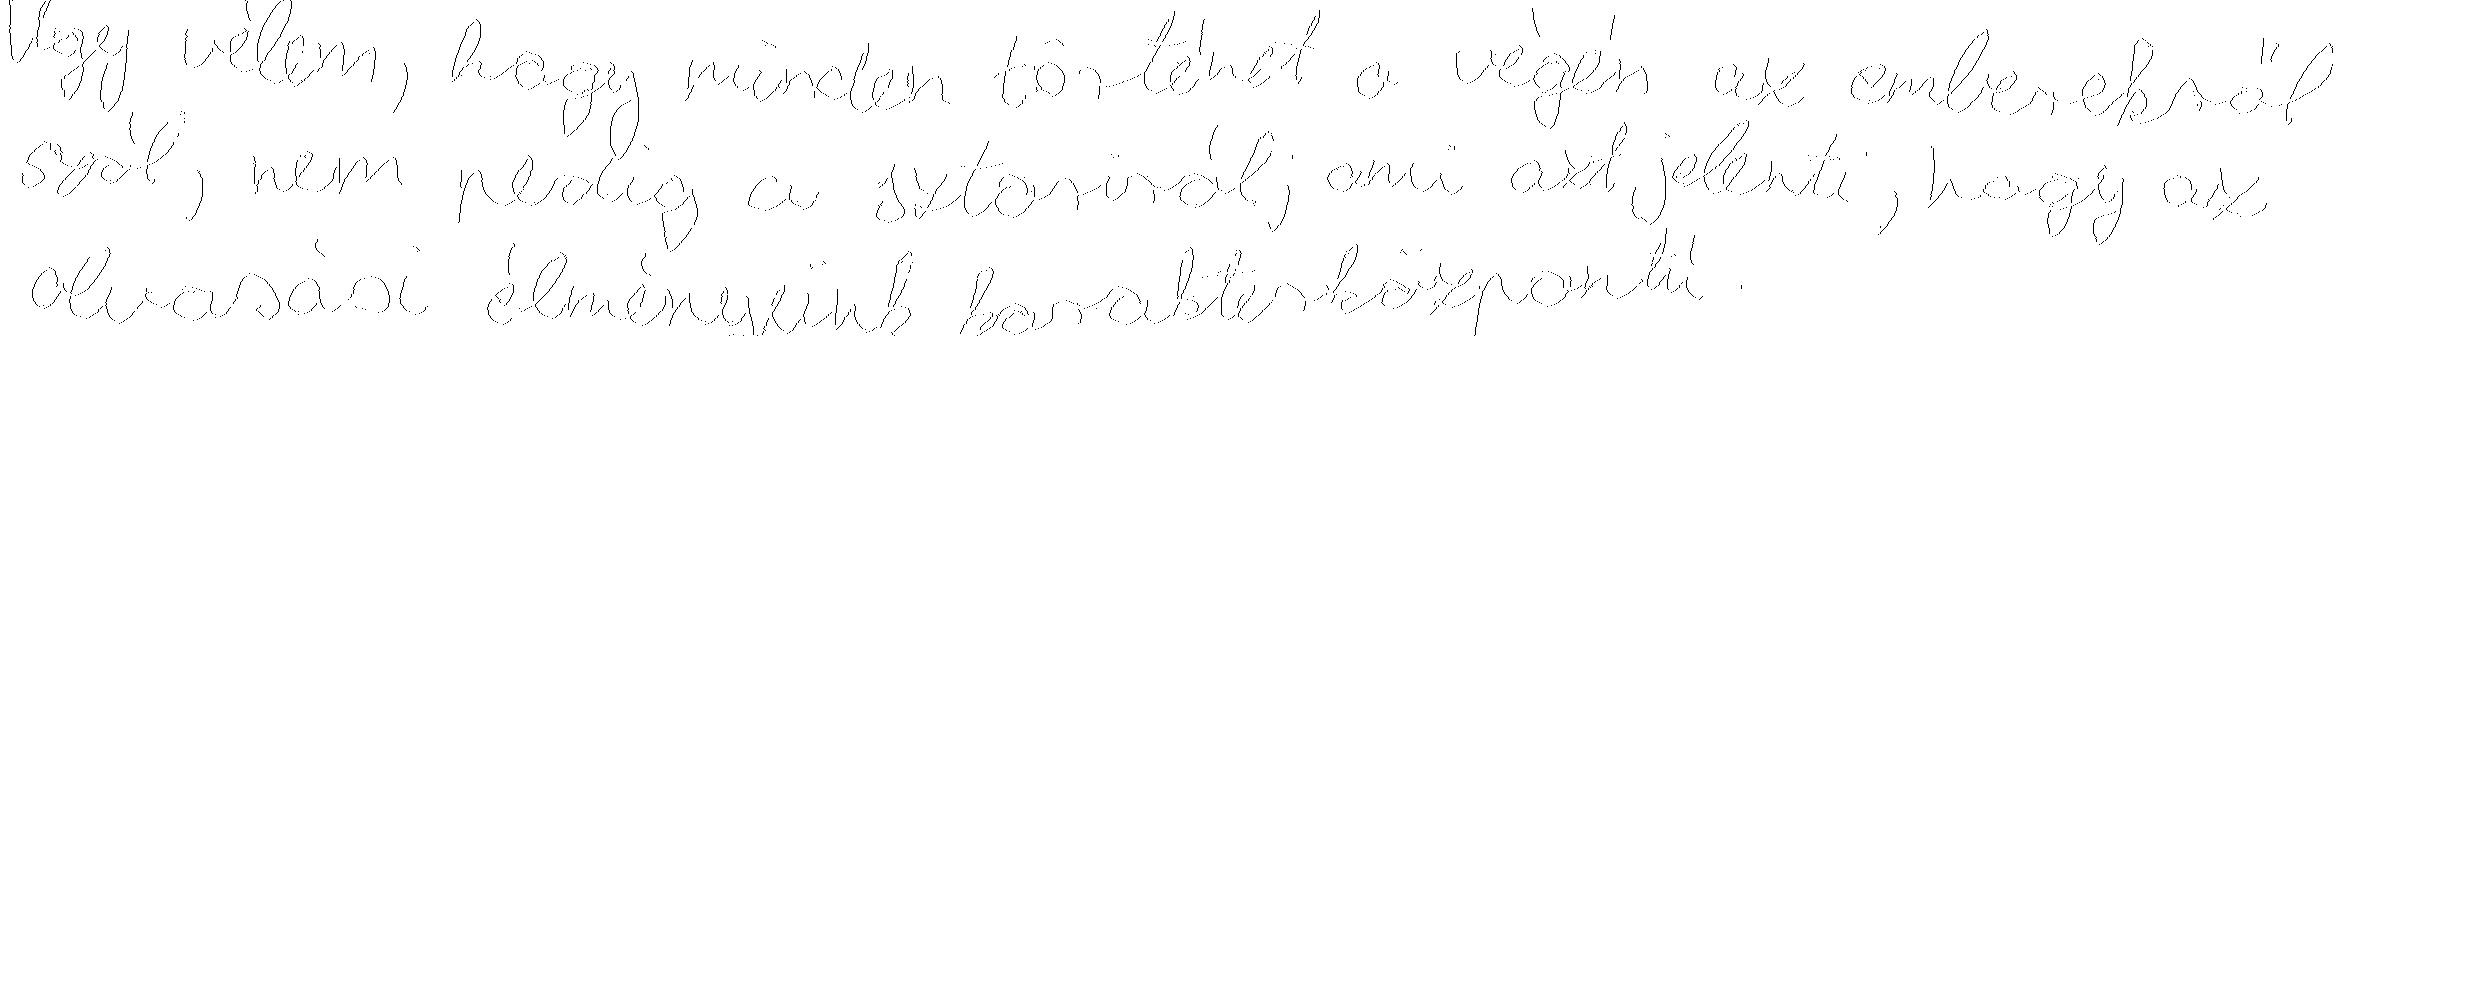 Úgy vélem, hogy minden történet a végén az emberekről
szól, nem pedig a sztoriról, ami azt jelenti, hogy az
olvasási élményünk karakterközponti.